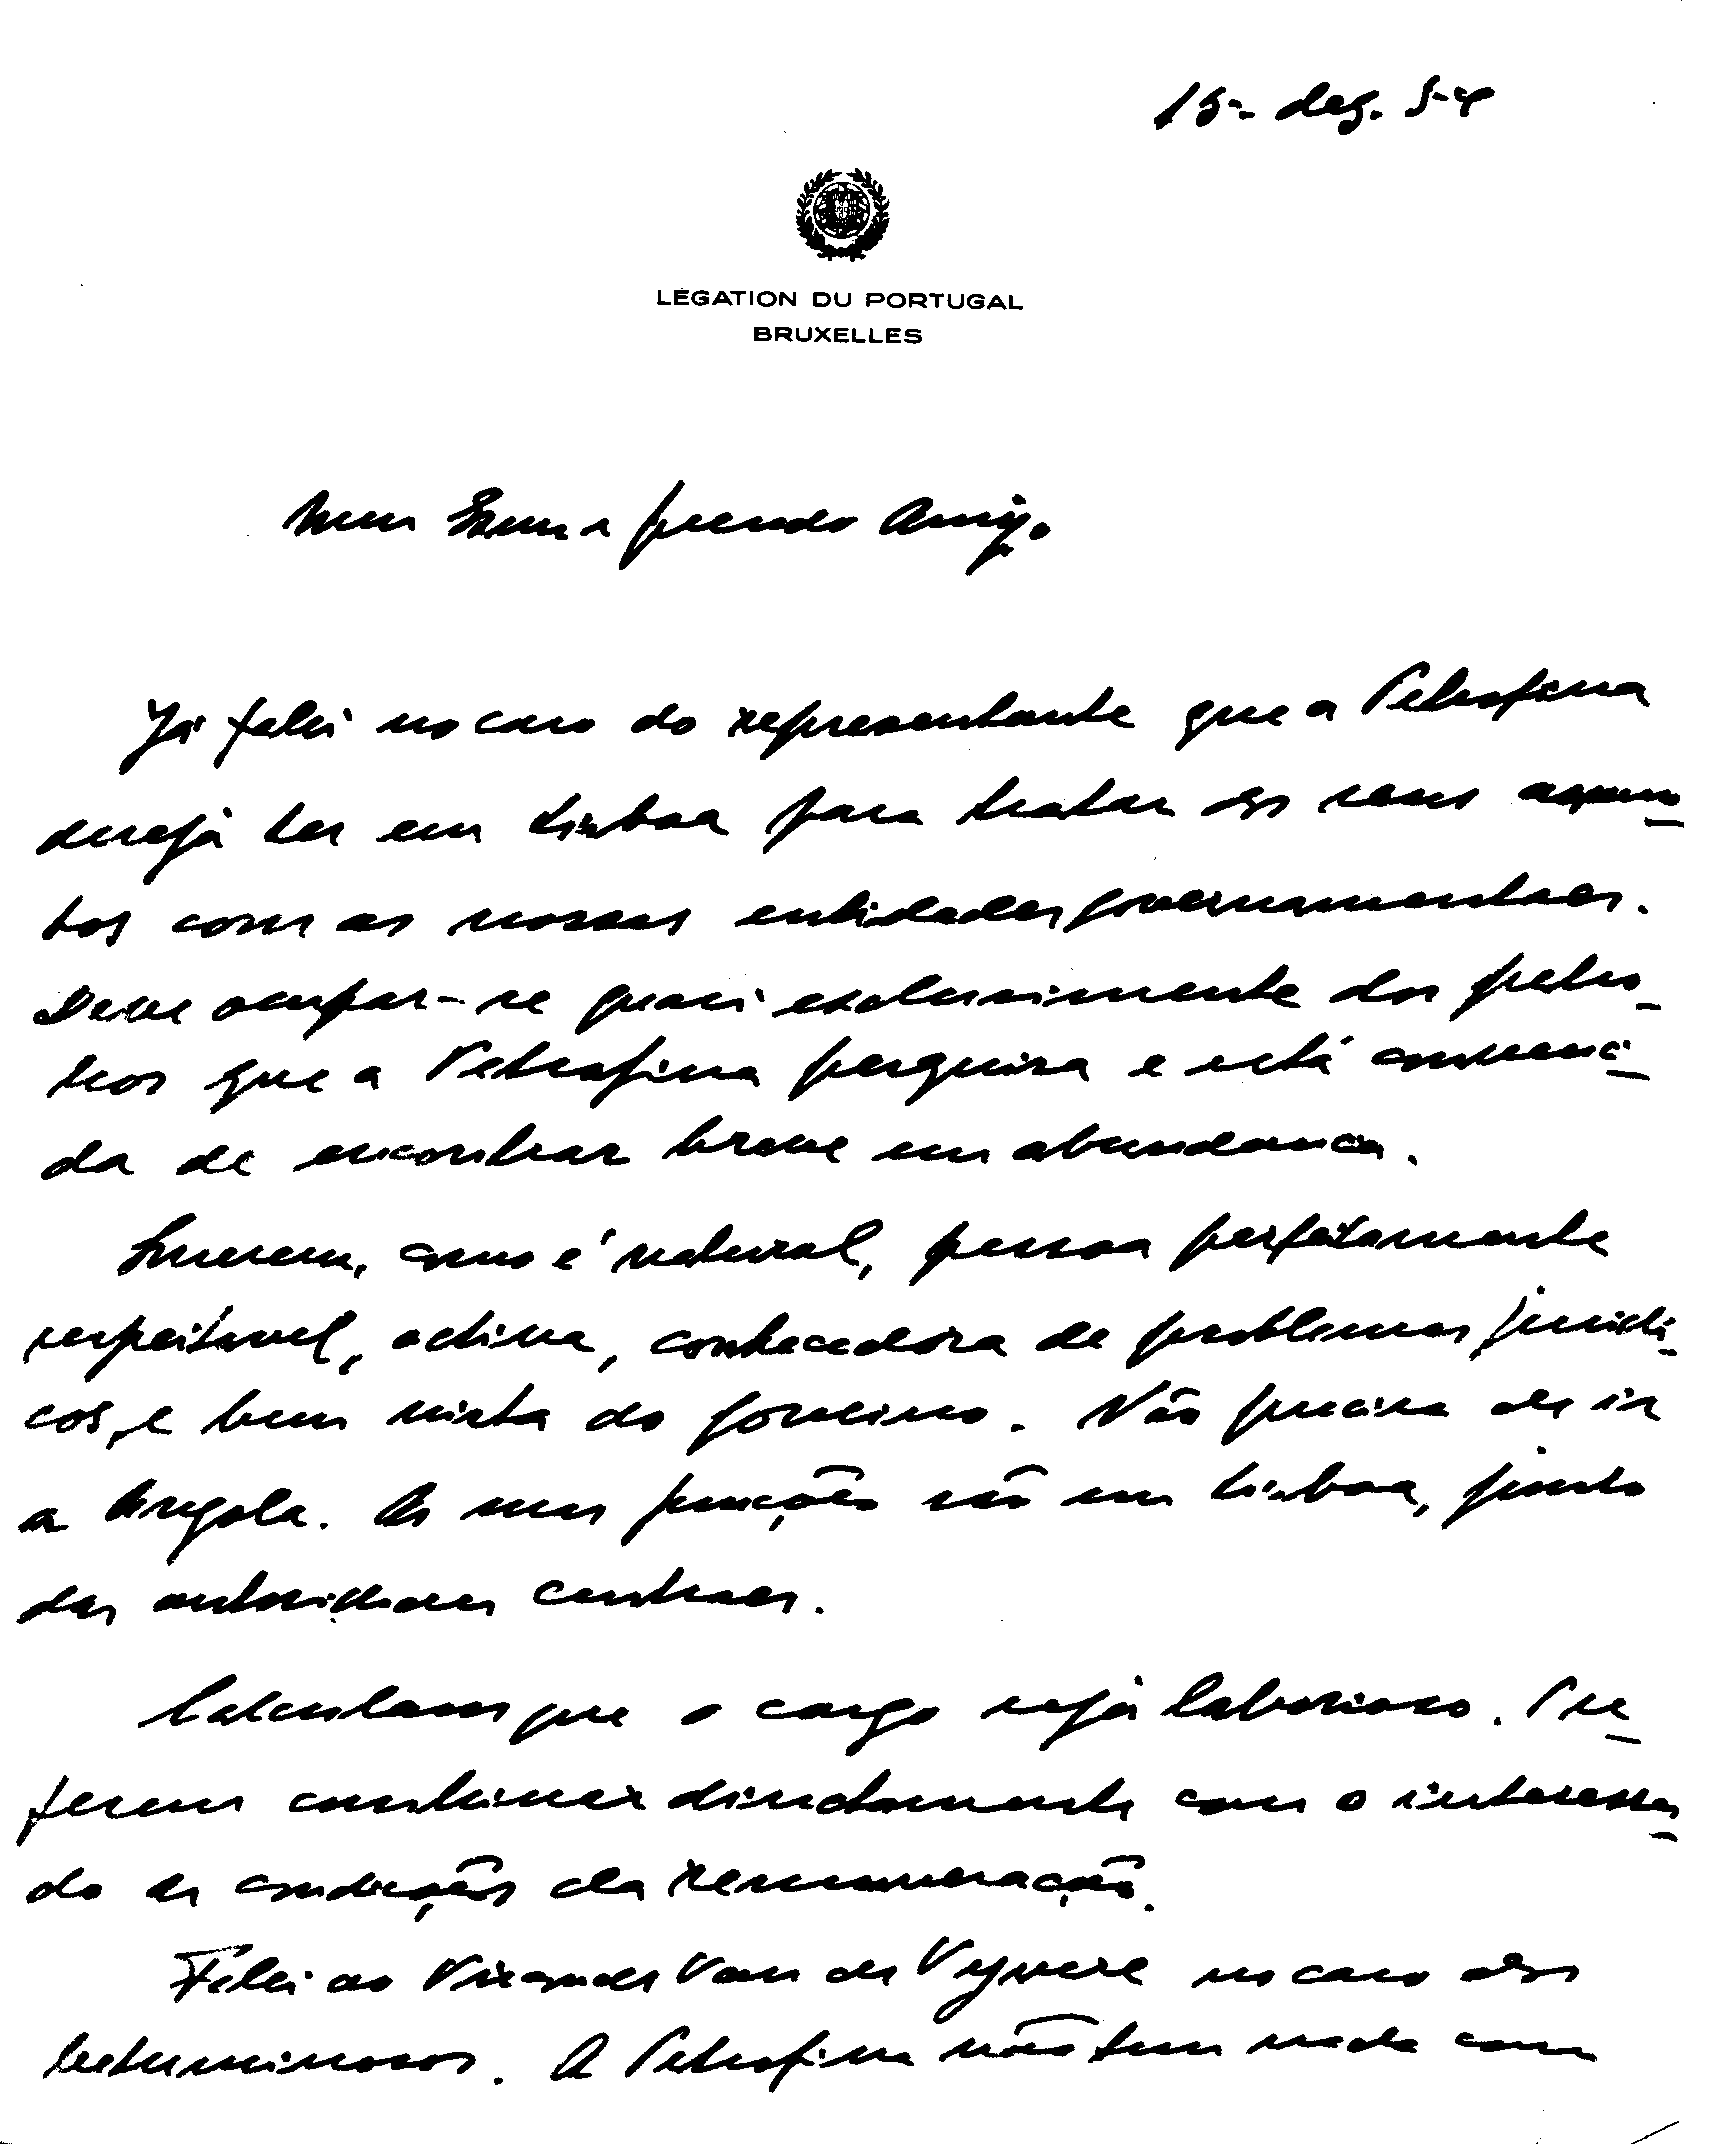 15- dez. 54
LÉGATION DU PORTUGAL
BRUXELLES
Meu Exmo e prezado Amigo
Já falei no caso do representante que a Petrofina
deseja ter em Lisboa para tratar dos seus assun-
tos com as nossas entidades governamentaes.
Deve ocupar-se quasi exclusivamente dos petro-
leos que a Petrofina pesquisa e está convenci-
da de encontrar breve em abundancia.
Querem, como é natural, pessoa perfeitamente
respeitavel, activa, conhecedora de problemas juridi-
cos, e bem vista do governo. Não precisa de ir
a Angola. As suas funções são em Lisboa, junto
das autoridades centraes.
Calculam que o cargo seja laborioso. Pre-
ferem combinar directamente com o interessa-
do as condições da remuneração.
Falei ao Visconde Van de Vyvere no caso dos
betuminosos. A Petrofina não tem nada com